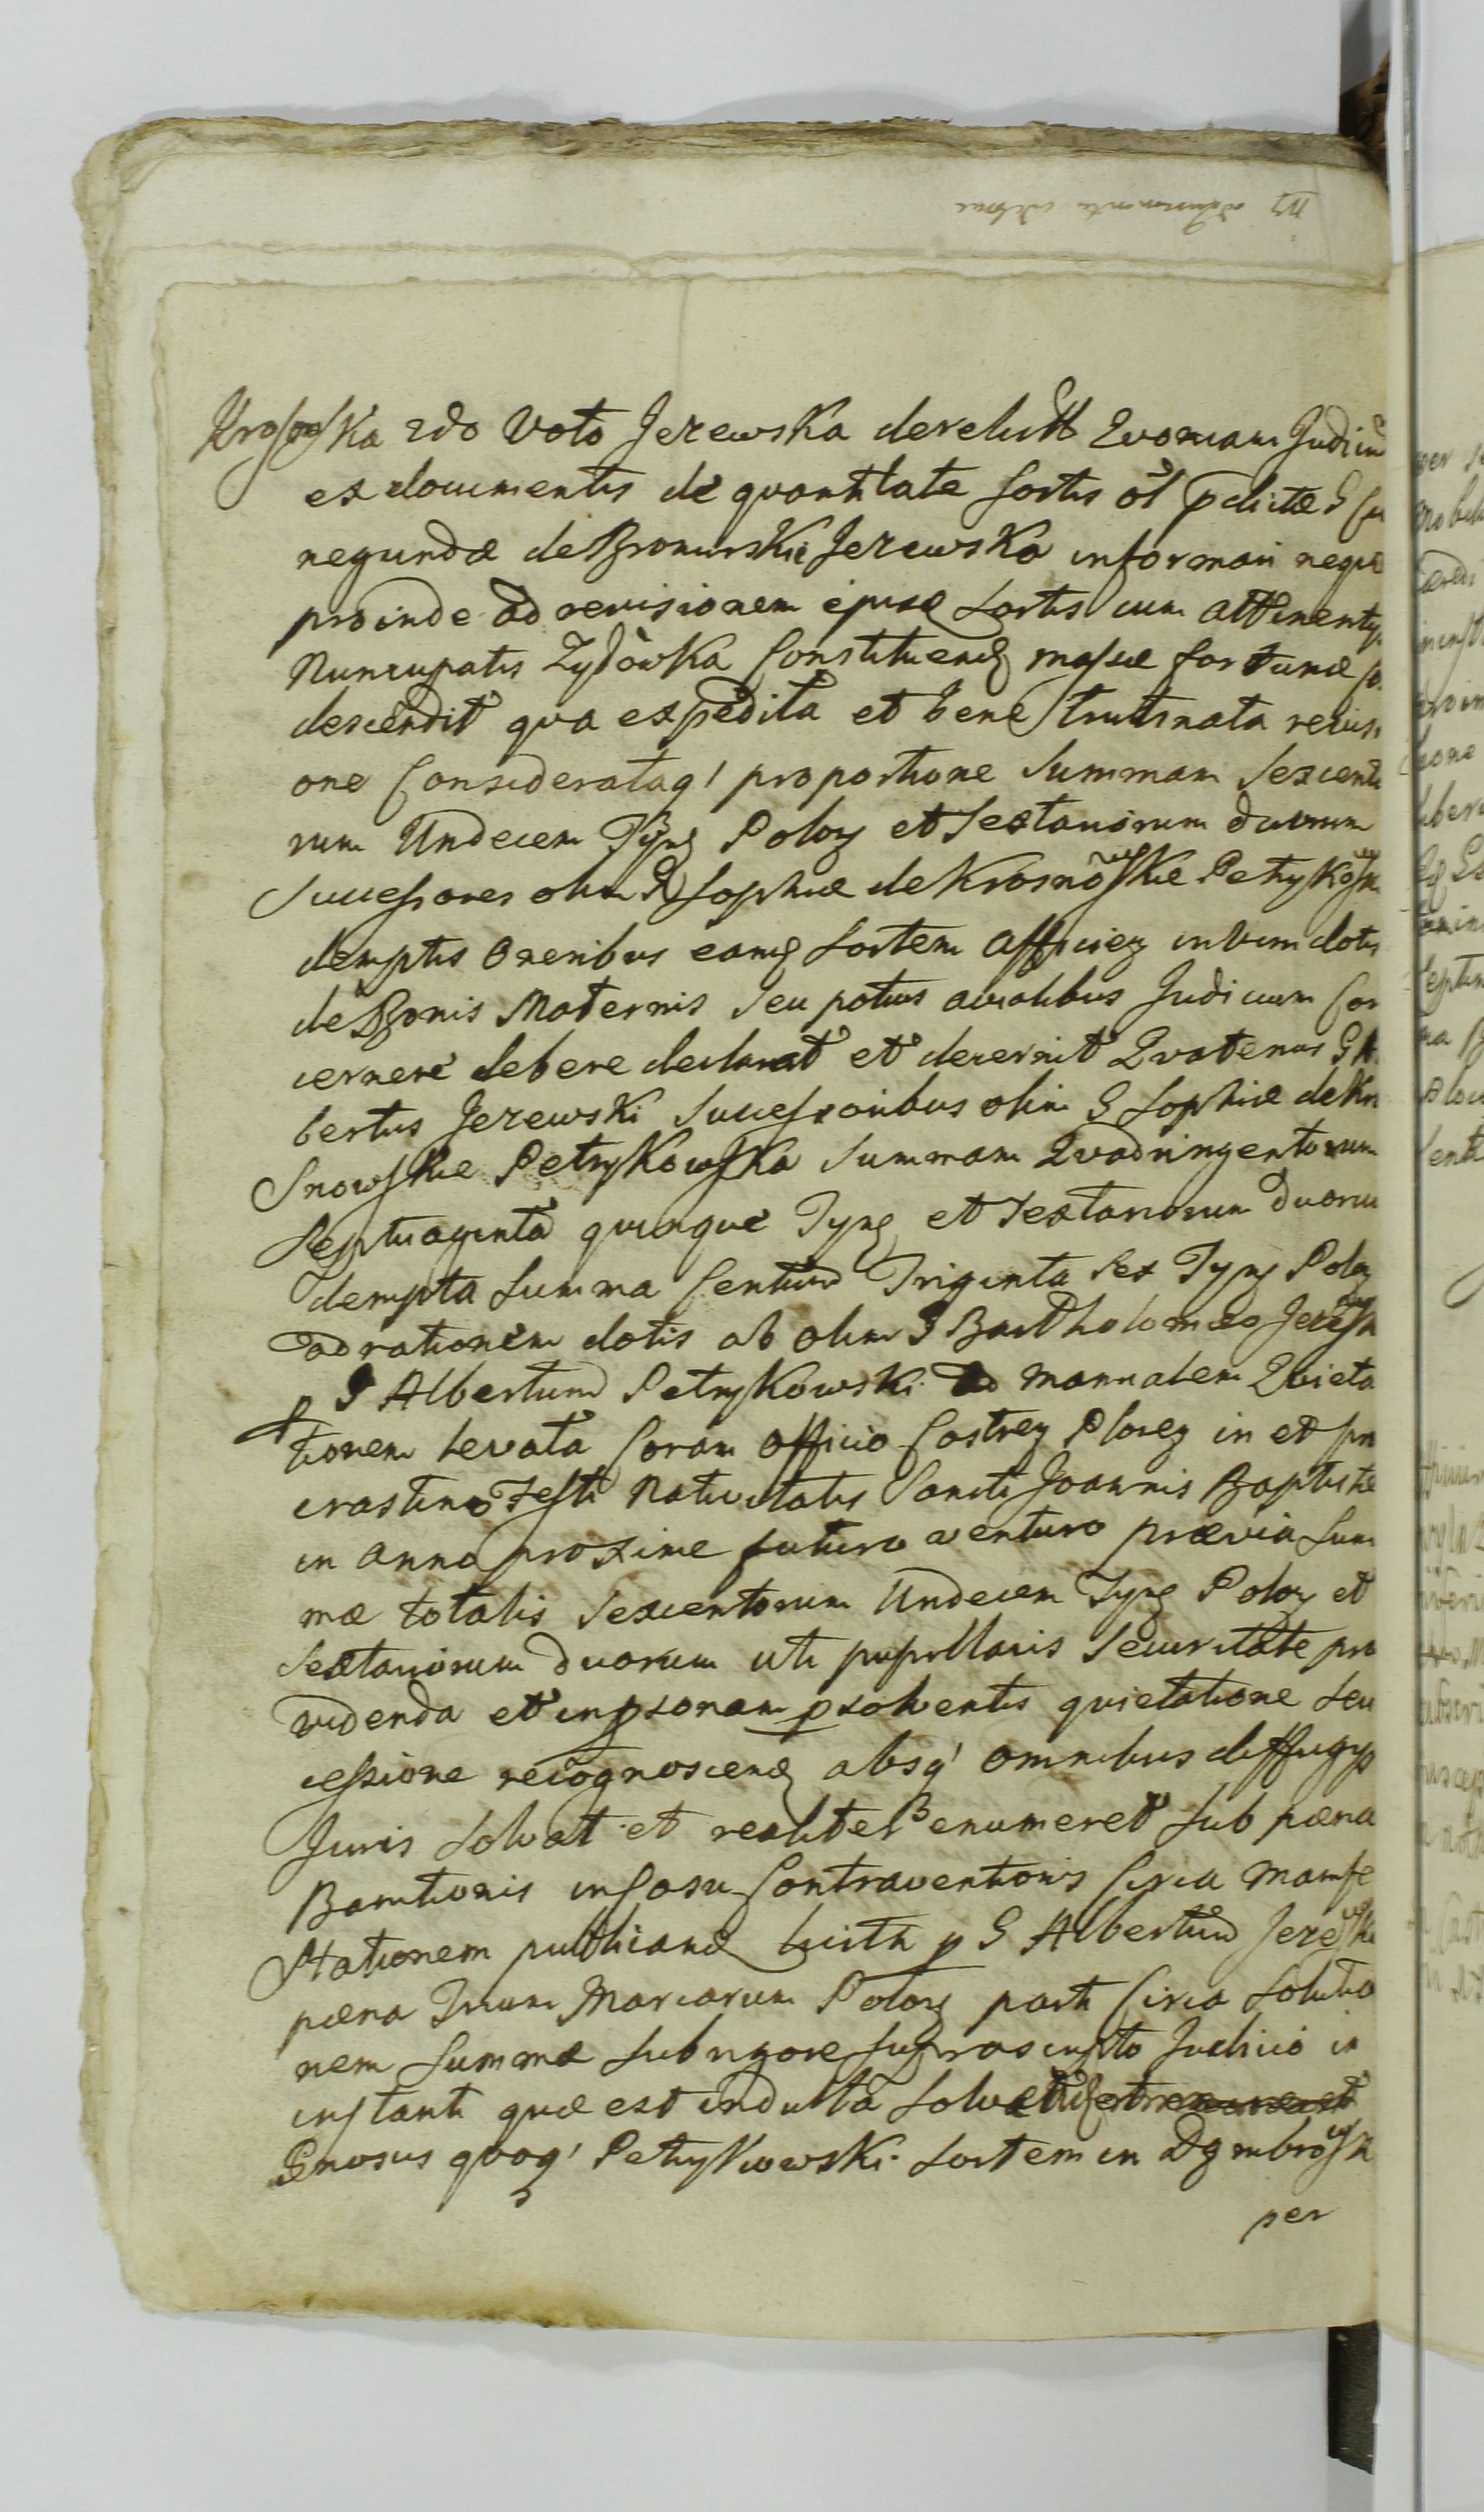 2do Voto Jerewska derelictt Qvoniam Judiciu
ex documentis de quantitate sortis ol pdictæ G Cu
negundæ de Bromirskie Jezewska informari nequit
proinde ad revisionem ejusd sortis cum attinentys
Nuncupatis Zydòwka Constituend massæ fortunæ
descendit qva expedita et bene trutinata revisi
one Considerataq' proportione Summam Sexcento
rum Undecem Tynf Polon et Sextanorum duorum
Successores olim G Sophiæ de Krosnowskie Petrykowsk
demptis oneribus eand sortem afficien in vim dotis
de Bonis Maternis Seu potius avialibus Judicium Con
cernere debere declarat et decernit Qvatenus G Al
bertus Jezewski Successoribus olim G Sophiæ de Kro
snowskie Petrykowska Summam Qvadringentorum
Septuaginta quinque Tynf et Sextanorum duorum
dempta Summa Centum Triginta Sex Tynf Polon
ad rationem dotis ab olim G Bartholomæo Jezewsk
p G Albertum Petrykowski ad manualem Qvieta
tionem levata Coram Officio Castren Plocen in et pro
crastino Festi Nativitatis Sancti Joannis Baptistæ
in anno proxime futuro venturo prævia Sum
mæ totalis Sexcentorum Undecem Tynf Polon et
Sextanorum duorum uti pupillaris Securitate pro
videnda et in psonam psolventis quietatione Seu
cessione recognoscend absq' omnibus diffugys
Juris Solvat et realiter enumeret Sub pæna
Bannitionis in Casu Contraventionis Circa manife
stationem publicand luitta p G Albertum Jezewski
pæna Trium Marcarum Polon parti Circa Solutio
nem Summæ Sub rigore Suprascripto Judicio in
instanti quæ est indulta Solvat
Gnosus qvoq' Petrykowski Sortem in Dembrowsk
per